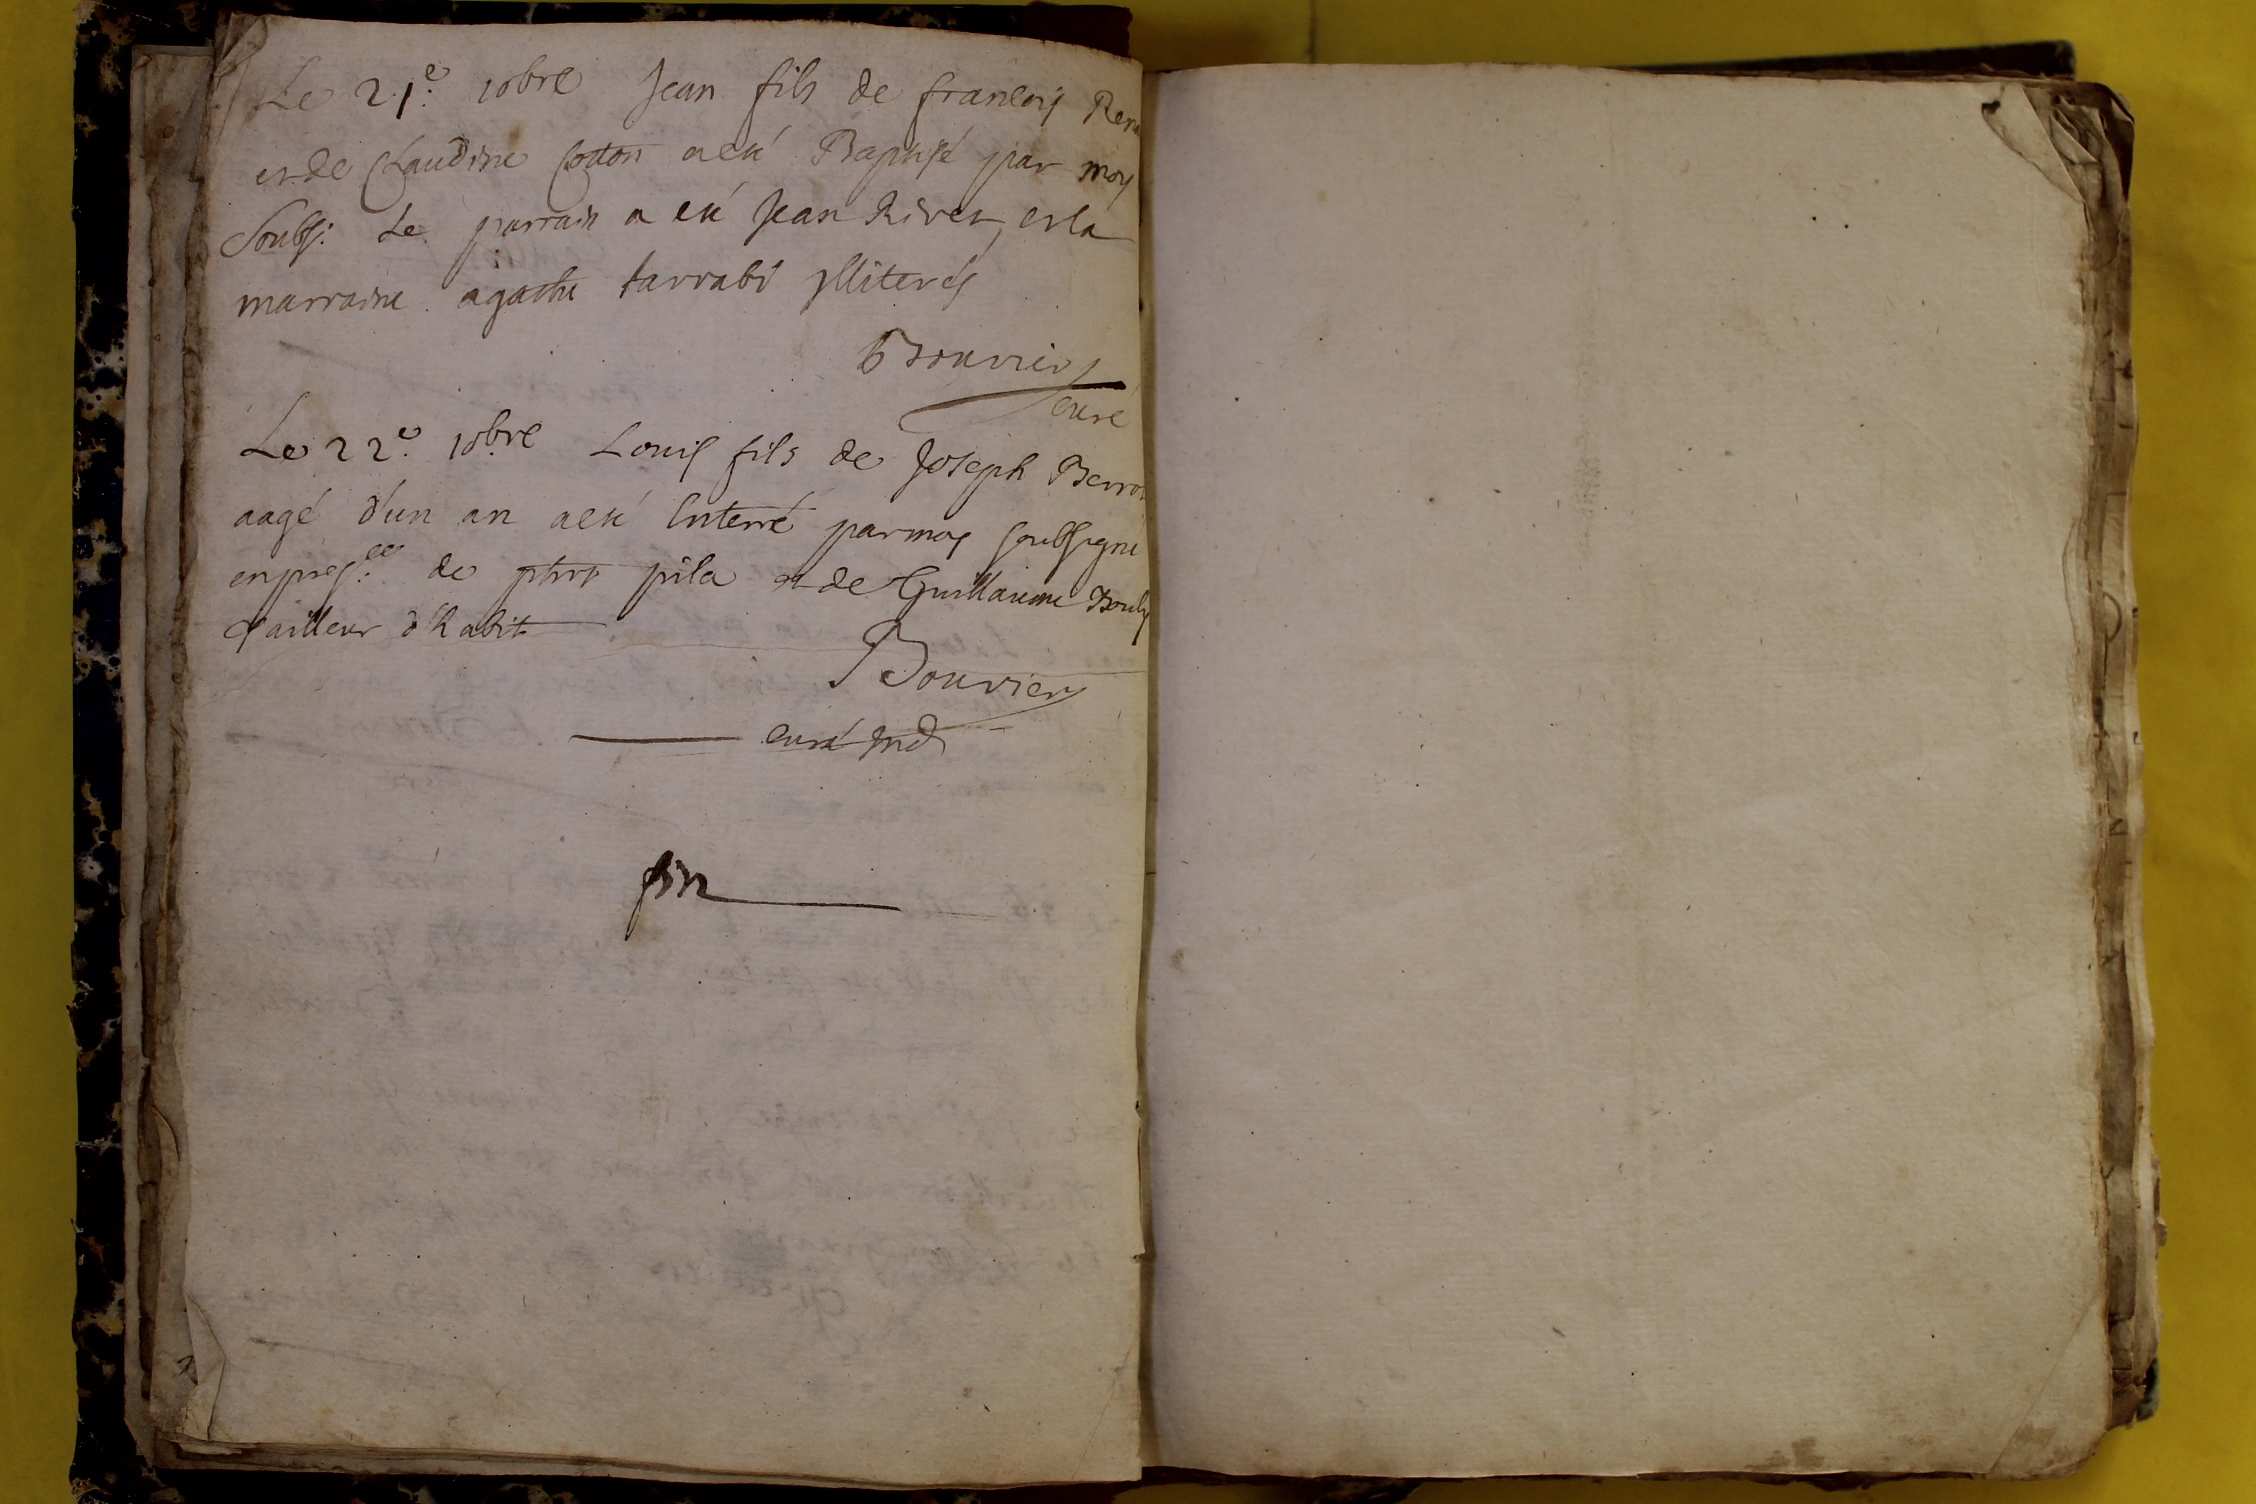 Le 21.e 10bre Jean fils de françois
et de Claudine Cotton a esté Baptisé par moy
soubs: Le parrain a esté Jean Rivet, et la
marraine agathe tarrabi ylliterés
Bouvier
curé
Le 22.e 10bre Louis fils de Joseph
aagé d'un an a esté Enterré par moy soubsigné
en pres.ce de pila et de Guillaume
tailleur d'habit
Bouvier
curé
fin